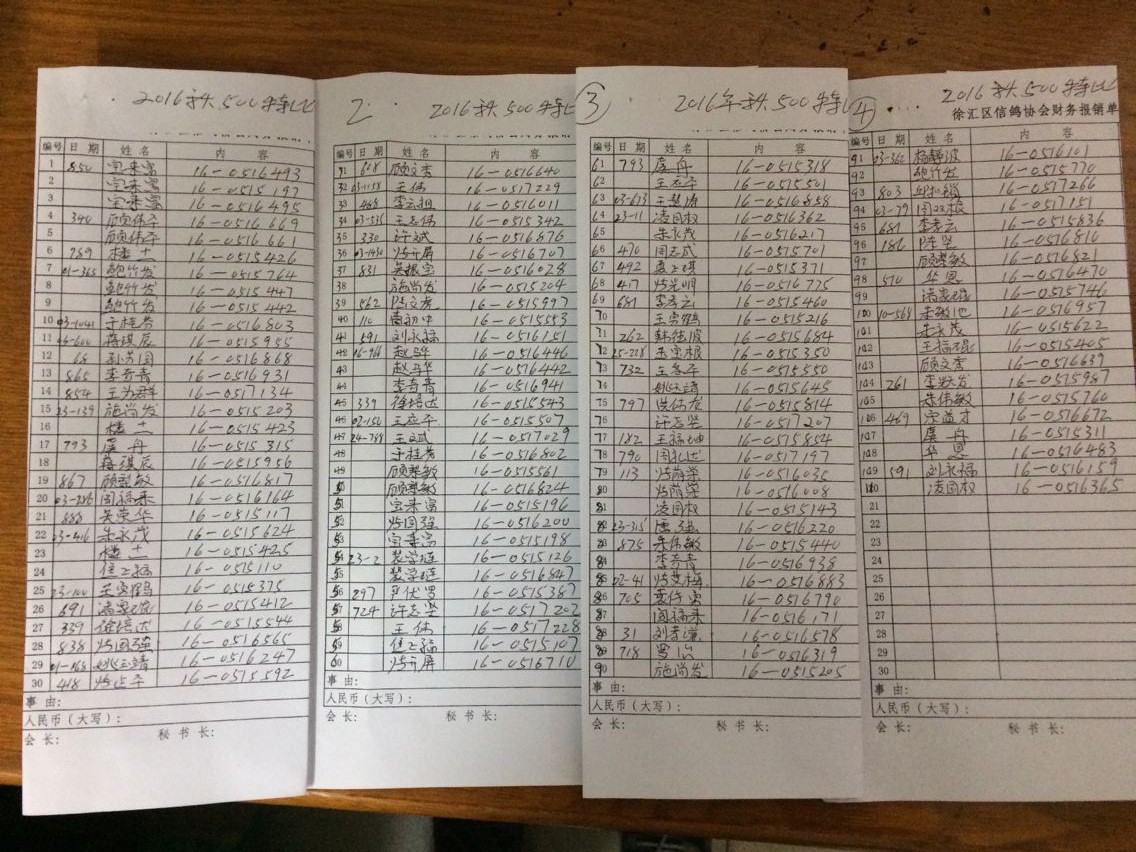 2016秋.500特比
编号 日 期 姓 名 内 容
1 850 宝来富 16-0516493
2 宝来富 16-0515197
3 宝来富 16-0516495
4 340 顾伟平 16-0516669
5 顾伟平 16-0516661
6 789 楼 16-0515426
7 01-365 鲍竹发 16-0515764
8 鲍竹发 16-0515447
9 鲍竹发 16-0515442
10 03-1041 于桂芳 16-0516803
11 蒋琪辰 16-0515955
12 68 孙芳国 16-0516868
13 865 李奇青 16-0516931
14 854 王为群 16-0517134
15 23-139 施尚发 16-0515203
16 楼 16-0515423
17 793 虞舟 16-0515315
18 蒋琪辰 16-0515956
19 867 顾黎敏 16-0516817
20 03-286 周福来 16-0516164
21 888 吴荣华 16-0515117
22 23-416 朱永茂 16-0515624
23 楼 16-0515425
24 16-0515110
25 23-100 王宝鹤 16-0515375
26 691 16-0515412
27 339 徐培达 16-0515544
28 838 周强 16-0516565
29 01-168 姚玉靖 16-0516247
30 418 16-0515592
事 由:
人民币（大写）:
会 长: 秘 书 长:
2 2016秋.500特比
编号 日 期 姓 名 内 容
31 608 顾文秀 16-0516640
32 03-1158 王伟 16-0517229
33 488 李云祖 16-0516011
34 03-535 王志伟 16-0515342
35 330 许斌 16-0516876
36 03-1430 开屏 16-0516707
37 831 吴根宝 16-0516028
38 施尚发 16-0515204
39 562 陆文彪 16-0515997
40 110 曹初中 16-0515553
41 591 刘永福 16-0516151
42 16-968 赵华 16-0516446
43 赵华 16-0516442
44 李奇青 16-0516941
45 339 徐培达 16-0515543
46 02-152 王应平 16-0515507
47 24-788 王斌 16-0517029
48 于桂芳 16-0516802
49 顾黎敏 16-0515561
50 顾黎敏 16-0516824
51 宝来富 16-0515196
52 国强 16-0516200
53 宝来富 16-0515198
54 23-2 裴学琏 16-0515126
55 裴学琏 16-0516847
56 297 16-0515387
57 724 许志坚 16-0517202
58 王伟 16-0517228
59 16-0515107
60 开屏 16-0516710
事 由:
人民币（大写）:
会 长: 秘 书 长:
③ 2016年秋.500特比
编号 日 期 姓 名 内 容
61 793 虞舟 16-0515318
62 王应平 16-0515501
63 03-613 王慧 16-0516858
64 23-11 凌国权 16-0516362
65 朱永茂 16-0516217
66 470 周志成 16-0515701
67 492 16-0515371
68 417 光明 16-0516775
69 681 李彦云 16-0515460
70 王宝鹤 16-0515216
71 262 韩德波 16-0515684
72 25-228 朱宝根 16-0515350
73 732 王冬平 16-0515550
74 姚玉靖 16-0515645
75 797 洪伟龙 16-0515814
76 许志坚 16-0517207
77 182 王福坤 16-0515854
78 790 周礼达 16-0517197
79 113 荫学 16-0516035
80 荫学 16-0516008
81 凌国权 16-0515143
82 23-315 唐强 16-0516220
83 875 朱伟敏 16-0515440
84 李奇青 16-0516938
85 02-41 16-0516883
86 705 16-0516790
87 周福来 16-0516171
88 31 刘孝谦 16-0516578
89 718 罗 16-0516319
90 施尚发 16-0515205
事 由:
人民币（大写）:
会 长: 秘 书 长:
④ 2016秋.500特比
徐汇区信鸽协会财务报销单
编号 日 期 姓 名 内 容
91 03-360 杨静波 16-0516101
92 鲍竹发 16-0515770
93 803 16-0517266
94 03-79 周双根 16-0517151
95 681 李彦云 16-0515836
96 186 陈坚 16-0516810
97 顾黎敏 16-0516821
98 510 华恩 16-0516470
99 16-0515746
100 10-568 朱敏池 16-0516957
101 朱永茂 16-0515622
102 王福琨 16-0515405
103 顾文秀 16-0516639
104 261 李妙发 16-0515987
105 朱伟敏 16-0515760
106 469 宋益才 16-0516672
107 虞舟 16-0515311
108 华恩 16-0516483
109 591 刘永福 16-0516159
110 凌国权 16-0516365
21
22
23
24
25
26
27
28
29
30
事 由:
人民币（大写）:
会 长: 秘 书 长: